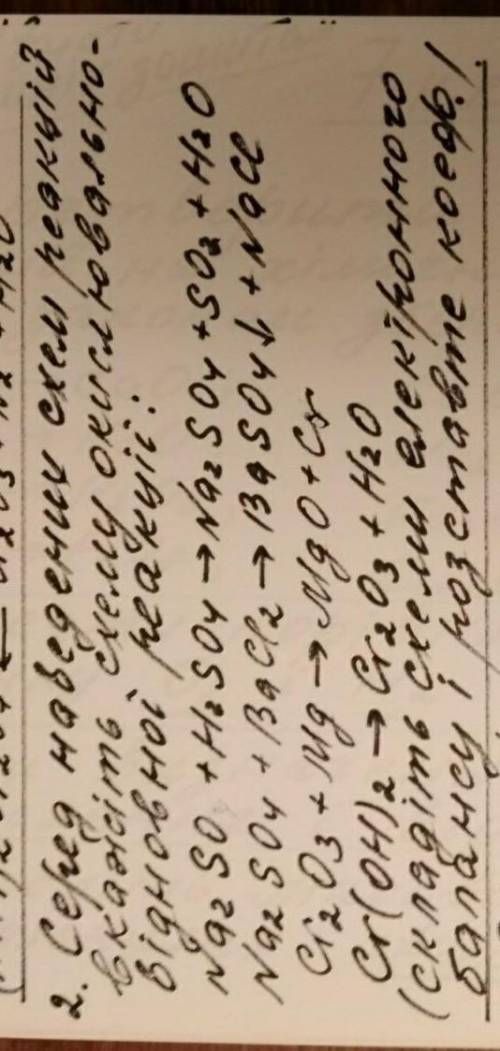 2. Серед наведених схем реакцій
вкажіть схему окислювально-
відновної реакції:
Na2SO + H2SO4 → Na2SO4 + SO2 + H2O
Na2SO4 + BaCl2 → BaSO4↓ + NaCl
Cr2O3 + Mg → MgO + Cr
Cr(OH)2 → Cr2O3 + H2O
(складіть схеми електронного
балансу і розставте коеф.)